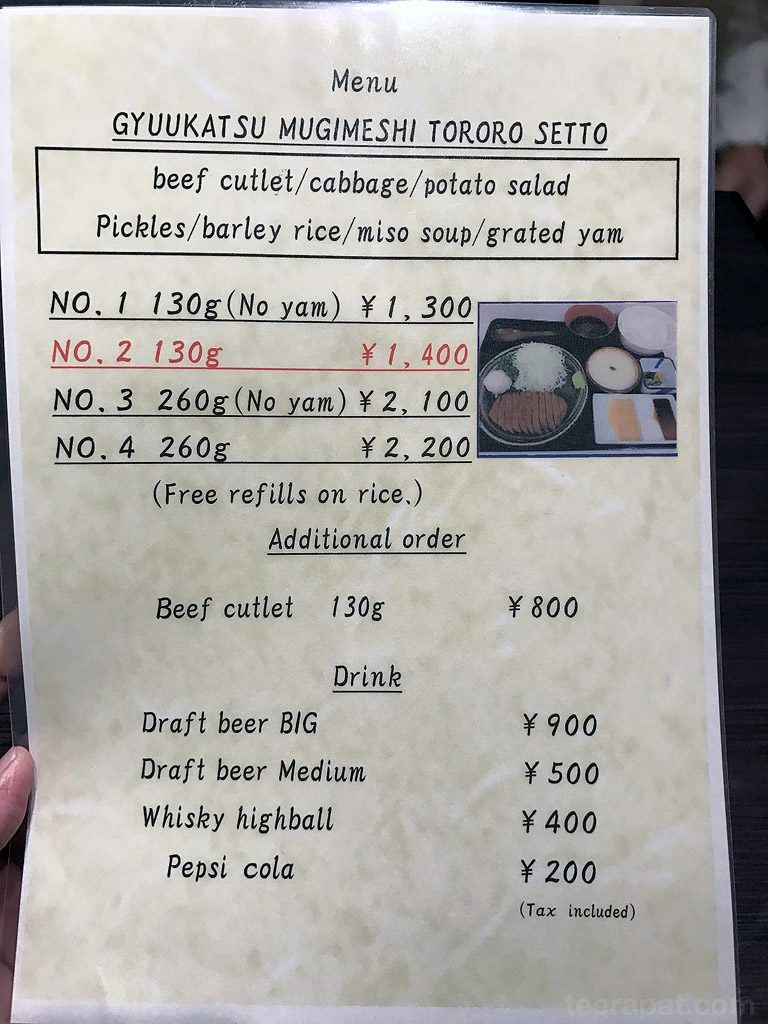 Menu
GYUUKATSU MUGIMESHI TORORO SETTO
beef cutlet/cabbage/potato salad
Pickles/barley rice/miso soup/grated yam
NO. 1 130g(No yam) ¥1,300
NO. 2 130g ¥1,400
NO. 3 260g(No yam) ¥2,100
NO. 4 260g ¥2,200
(Free refills on rice.)
Additional order
Beef cutlet 130g ¥800
Drink
Draft beer BIG ¥900
Draft beer Medium ¥500
Whisky highball ¥400
Pepsi cola ¥200
(Tax included)
teerapat.com